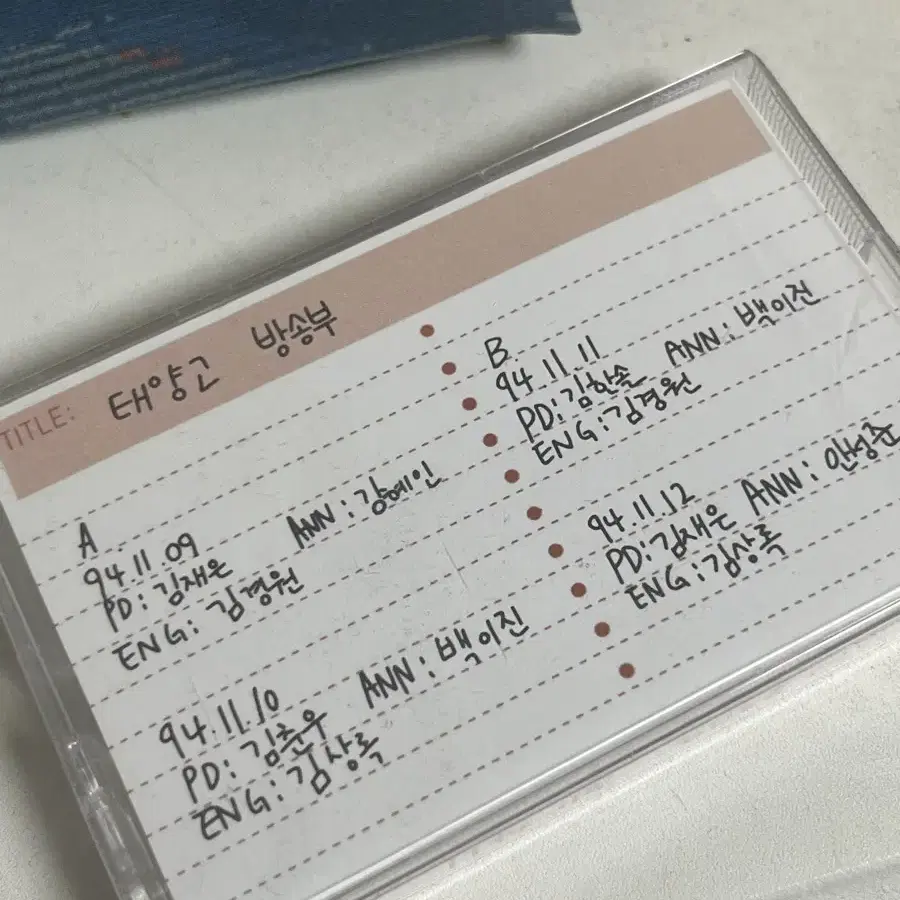 TITLE: 태양고 방송부
A
94.11.09
PD: 김재은 ANN: 강혜인
ENG: 김경원
94.11.10
PD: 김춘우 ANN: 백이진
ENG: 김상록
B
94.11.11
PD: 김한솔 ANN: 백이진
ENG: 김경원
94.11.12
PD: 김재은 ANN: 안성준
ENG: 김상록